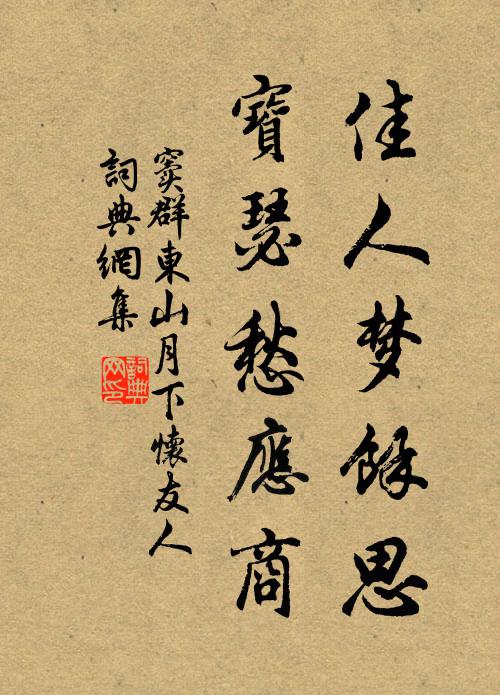 佳人梦餘思
寶瑟愁應商
窦群東山月下懷友人
詞典網集
詞典网印